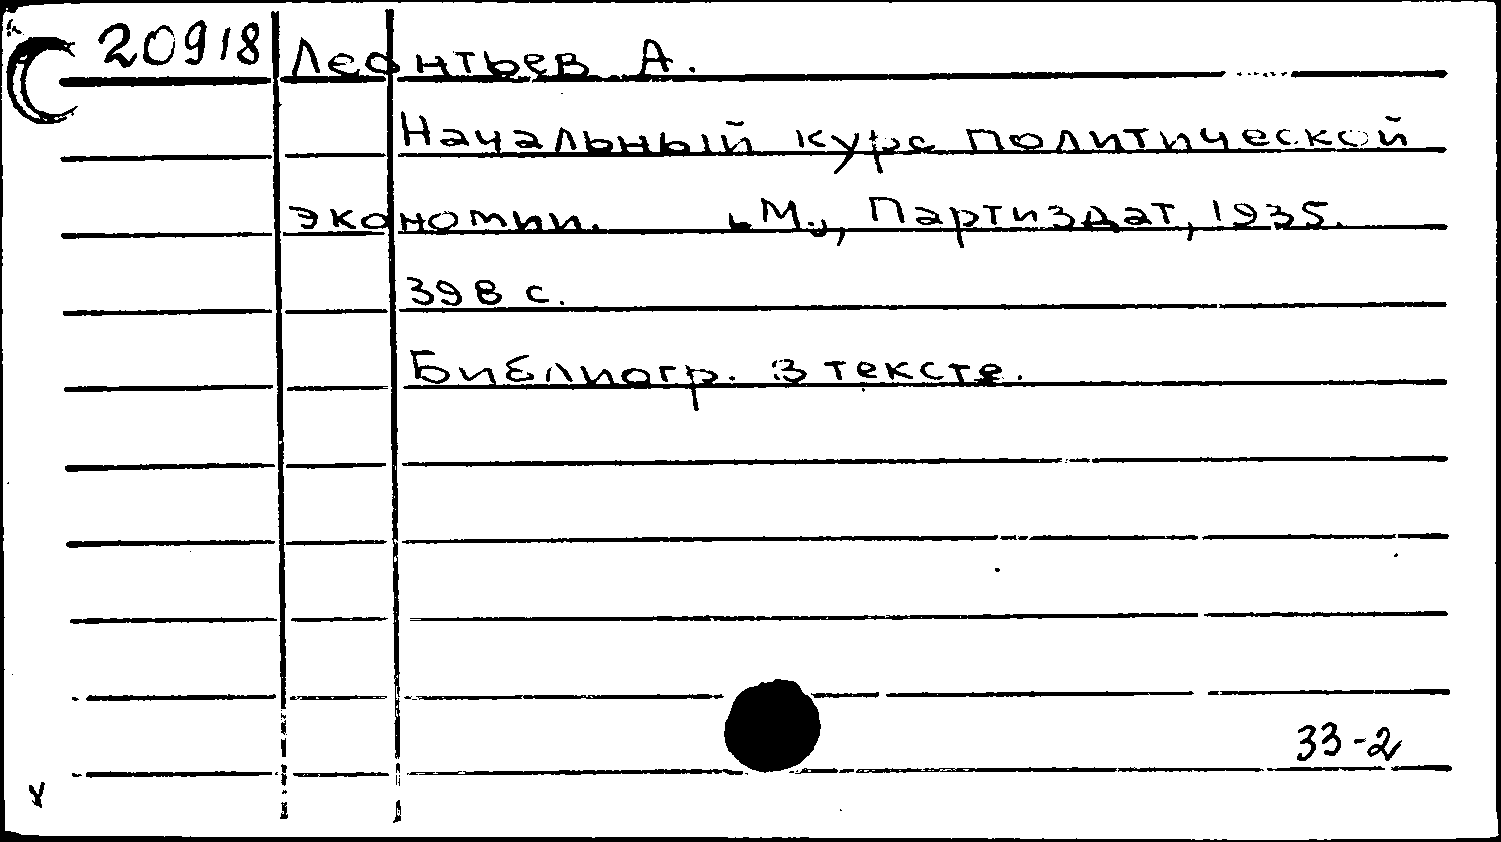 20918 Леонтьев А.
Начальный курс политической
экономии. [М.], Партиздат, 1935.
398 с.
Библиогр. в тексте.
33-2